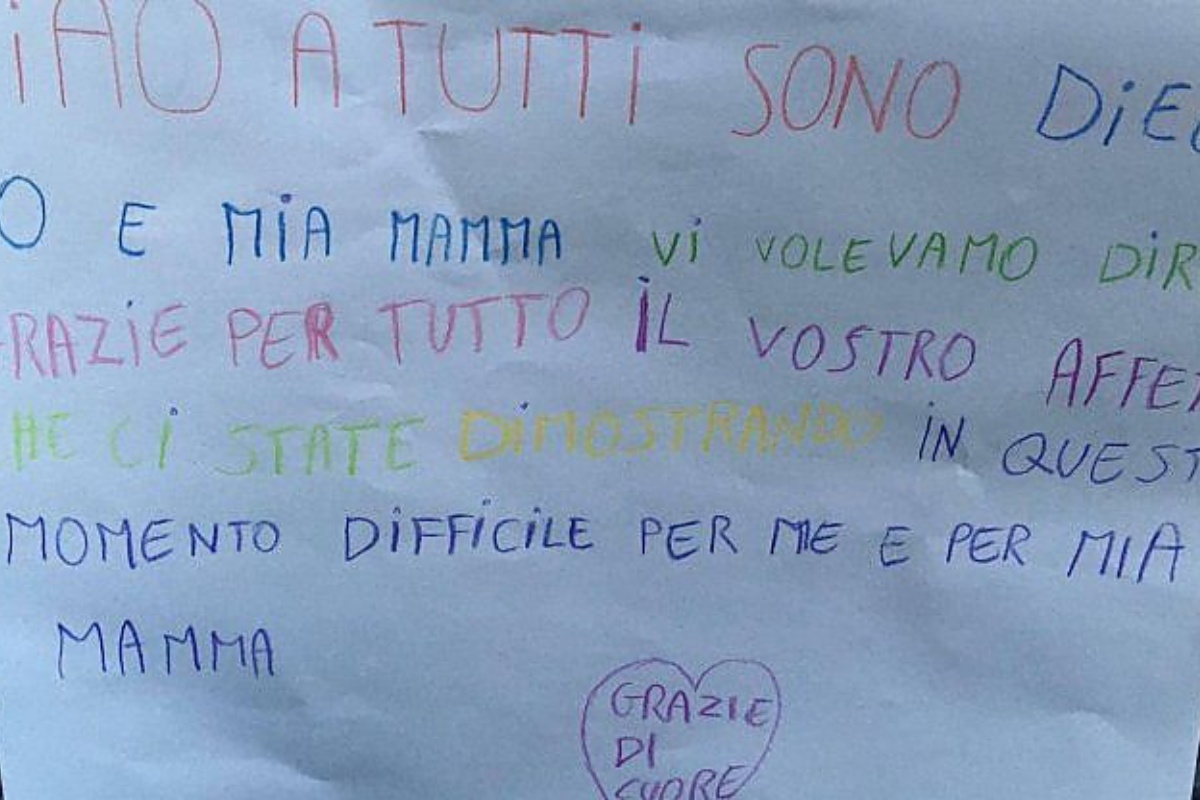 CIAO A TUTTI SONO DIEG
O E MIA MAMMA VI VOLEVAMO DIR
GRAZIE PER TUTTO IL VOSTRO AFFET
CHE CI STATE DIMOSTRANDO IN QUEST
MOMENTO DIFFICILE PER ME E PER MIA
MAMMA
GRAZIE
DI
CUORE